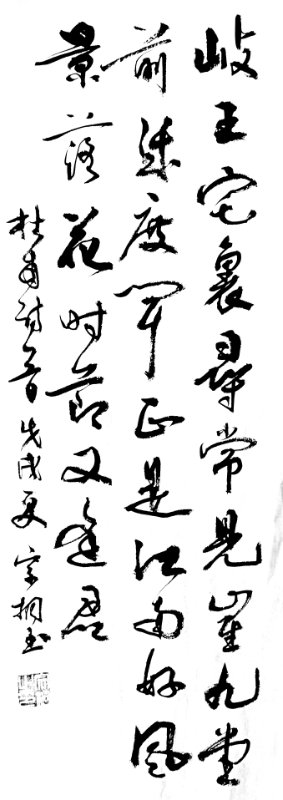 岐王宅裏尋常見崔九堂
前幾度聞正是江南好風
景落花时節又逢君
杜甫詩一首戊戌夏宗桐玉